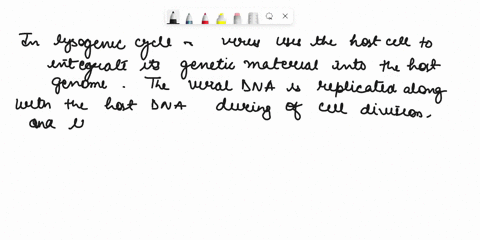 In lysogenic cycle ~ virus uses the host cell to
integrate its genetic material into the host
genome. The viral DNA is replicated along
with the host DNA during of cell division.
and